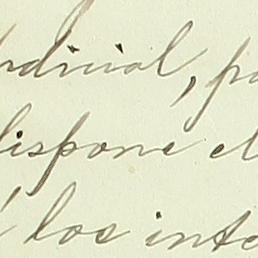 rdicial, pa
dispone el
los inte